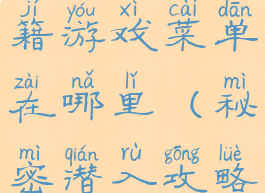 jí yóu xì cài dān
籍游戏菜单
zài nǎ lǐ mì
在哪里(秘
mì qián rù gōng lüè
密潜入攻略